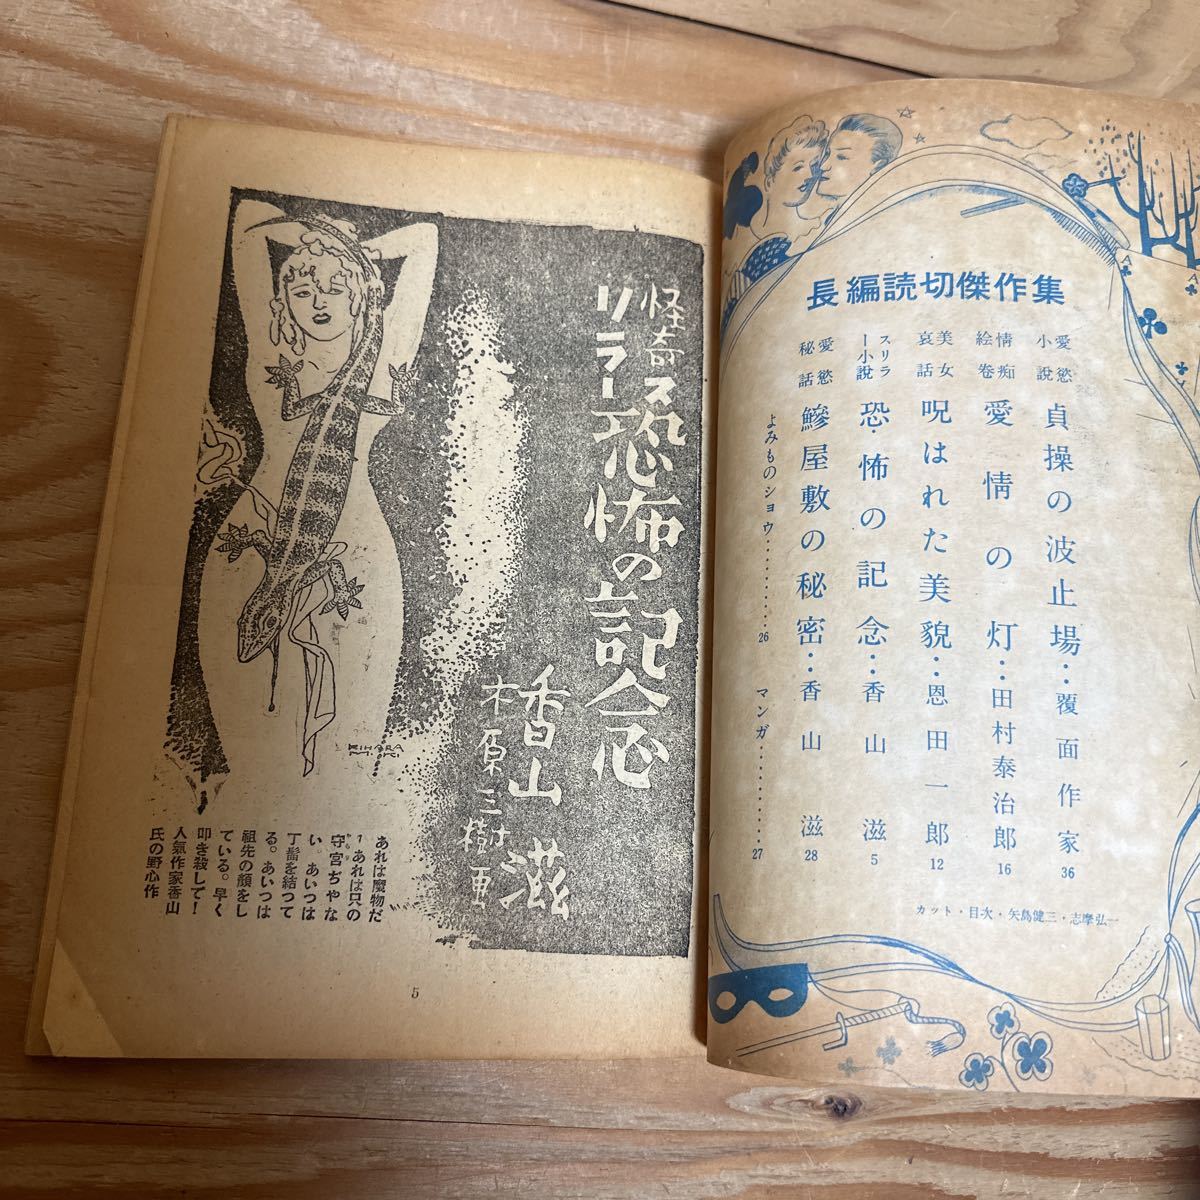 長編読切傑作集
愛慾小説 貞操の波止場‥覆面作家 36
情痴絵巻 愛情の灯‥田村泰治郎 16
美女哀話 呪はれた美貌‥恩田一郎 12
スリラー小説 恐怖の記念‥香山滋 5
愛慾秘話 鰺屋敷の秘密‥香山滋 28
よみものショウ………26
マンガ………27
カット・目次・矢島健三・志摩弘一
怪奇スリラー
恐怖の記念
香山滋
木原三樹画
KIHARA
あれは魔物だ
! あれは只の
守宮ぢやな
い。あいつは
丁髷を結つて
る。あいつは
祖先の顔をし
ている。早く
叩き殺して!
人氣作家香山
氏の野心作
5